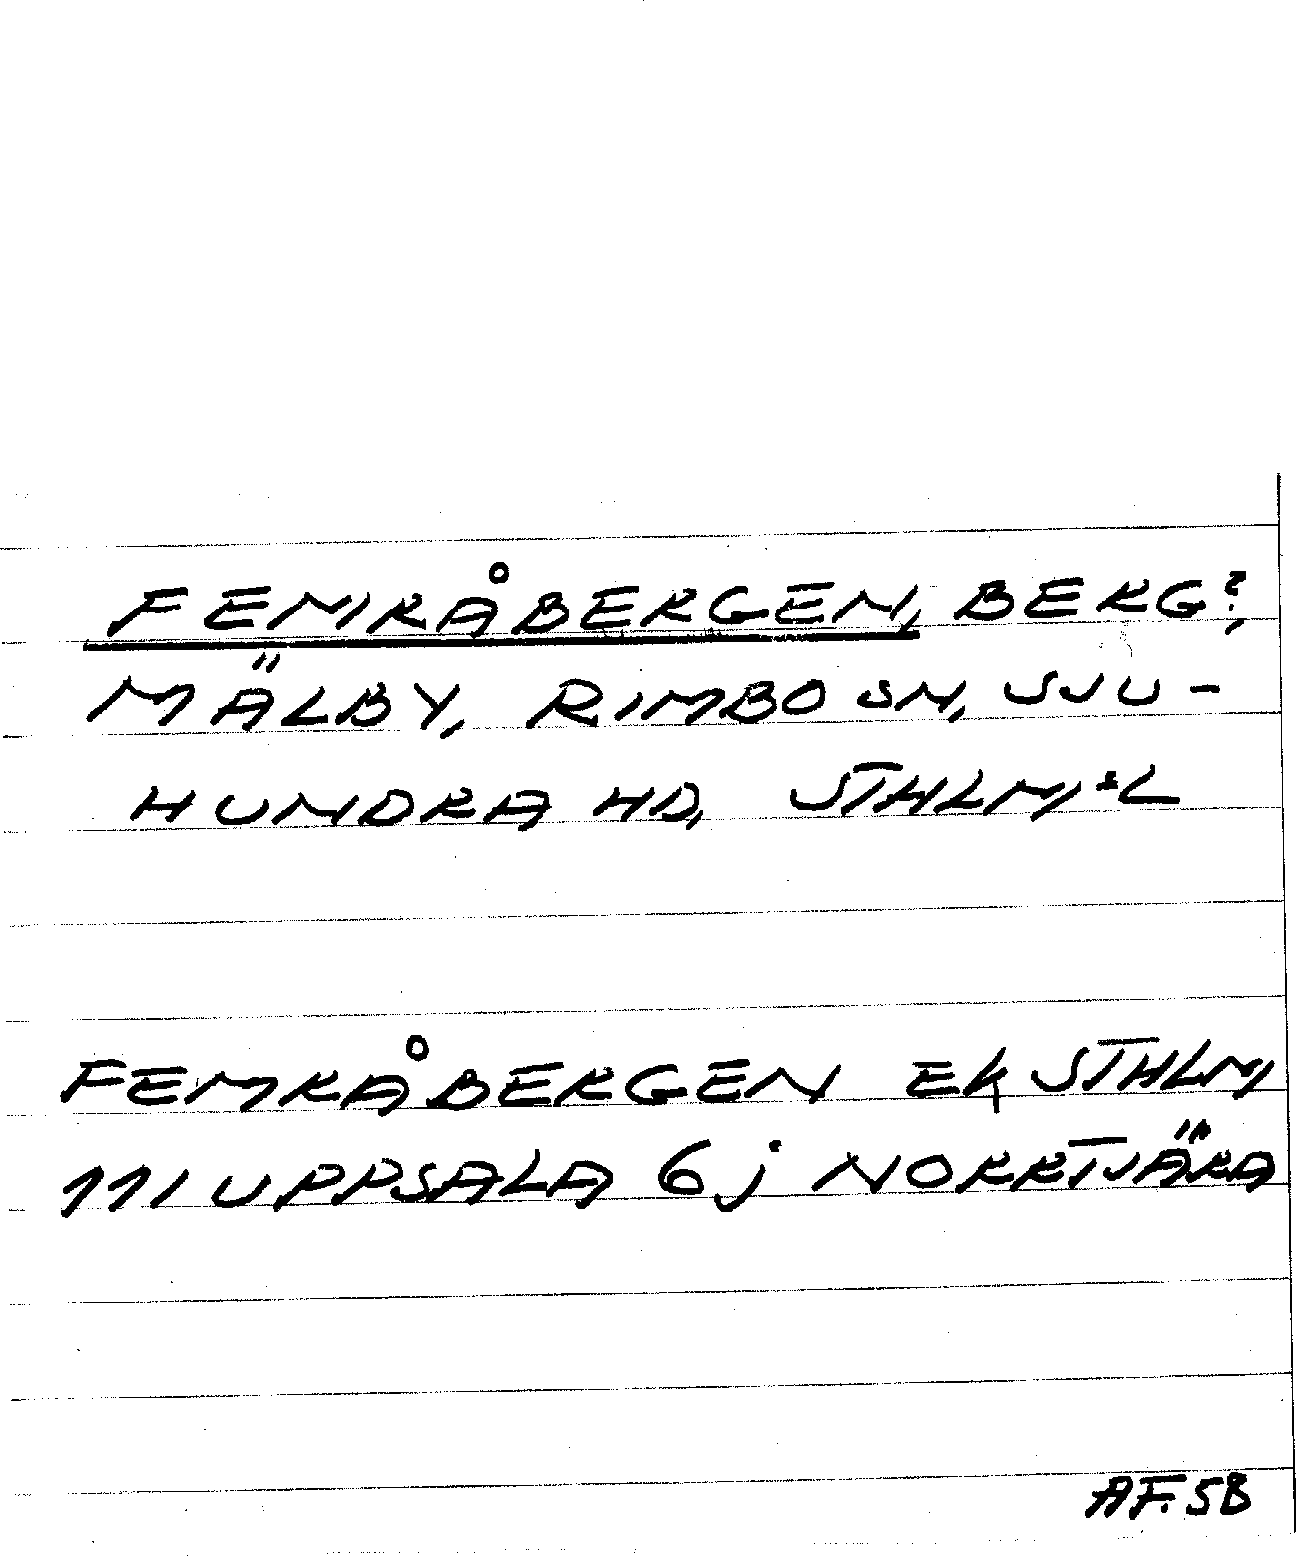 FEMRÅBERGEN, BERG?,
MÄLBY, RIMBO SN, SJU-
HUNDRA HD, STHLM:SL
FEMRÅBERGEN EK STHLM
111 UPPSALA 6j NORRTJÄRA
AF. 58